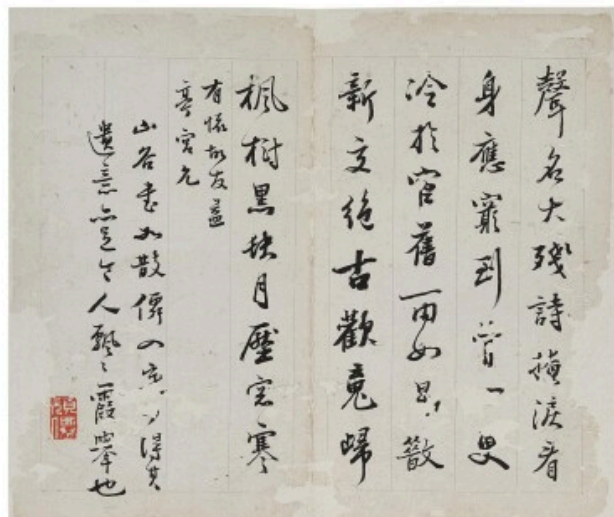 聲名大殘詩蘸淚看
身應窮到骨一
冷於官舊雨如星散
新交絕古歡魂歸
楓樹黑缺月壓窓寒
有懷故友孟
亭宮允
山谷書如散僧入定少得其
遺意亦足令人飄〻霞舉也